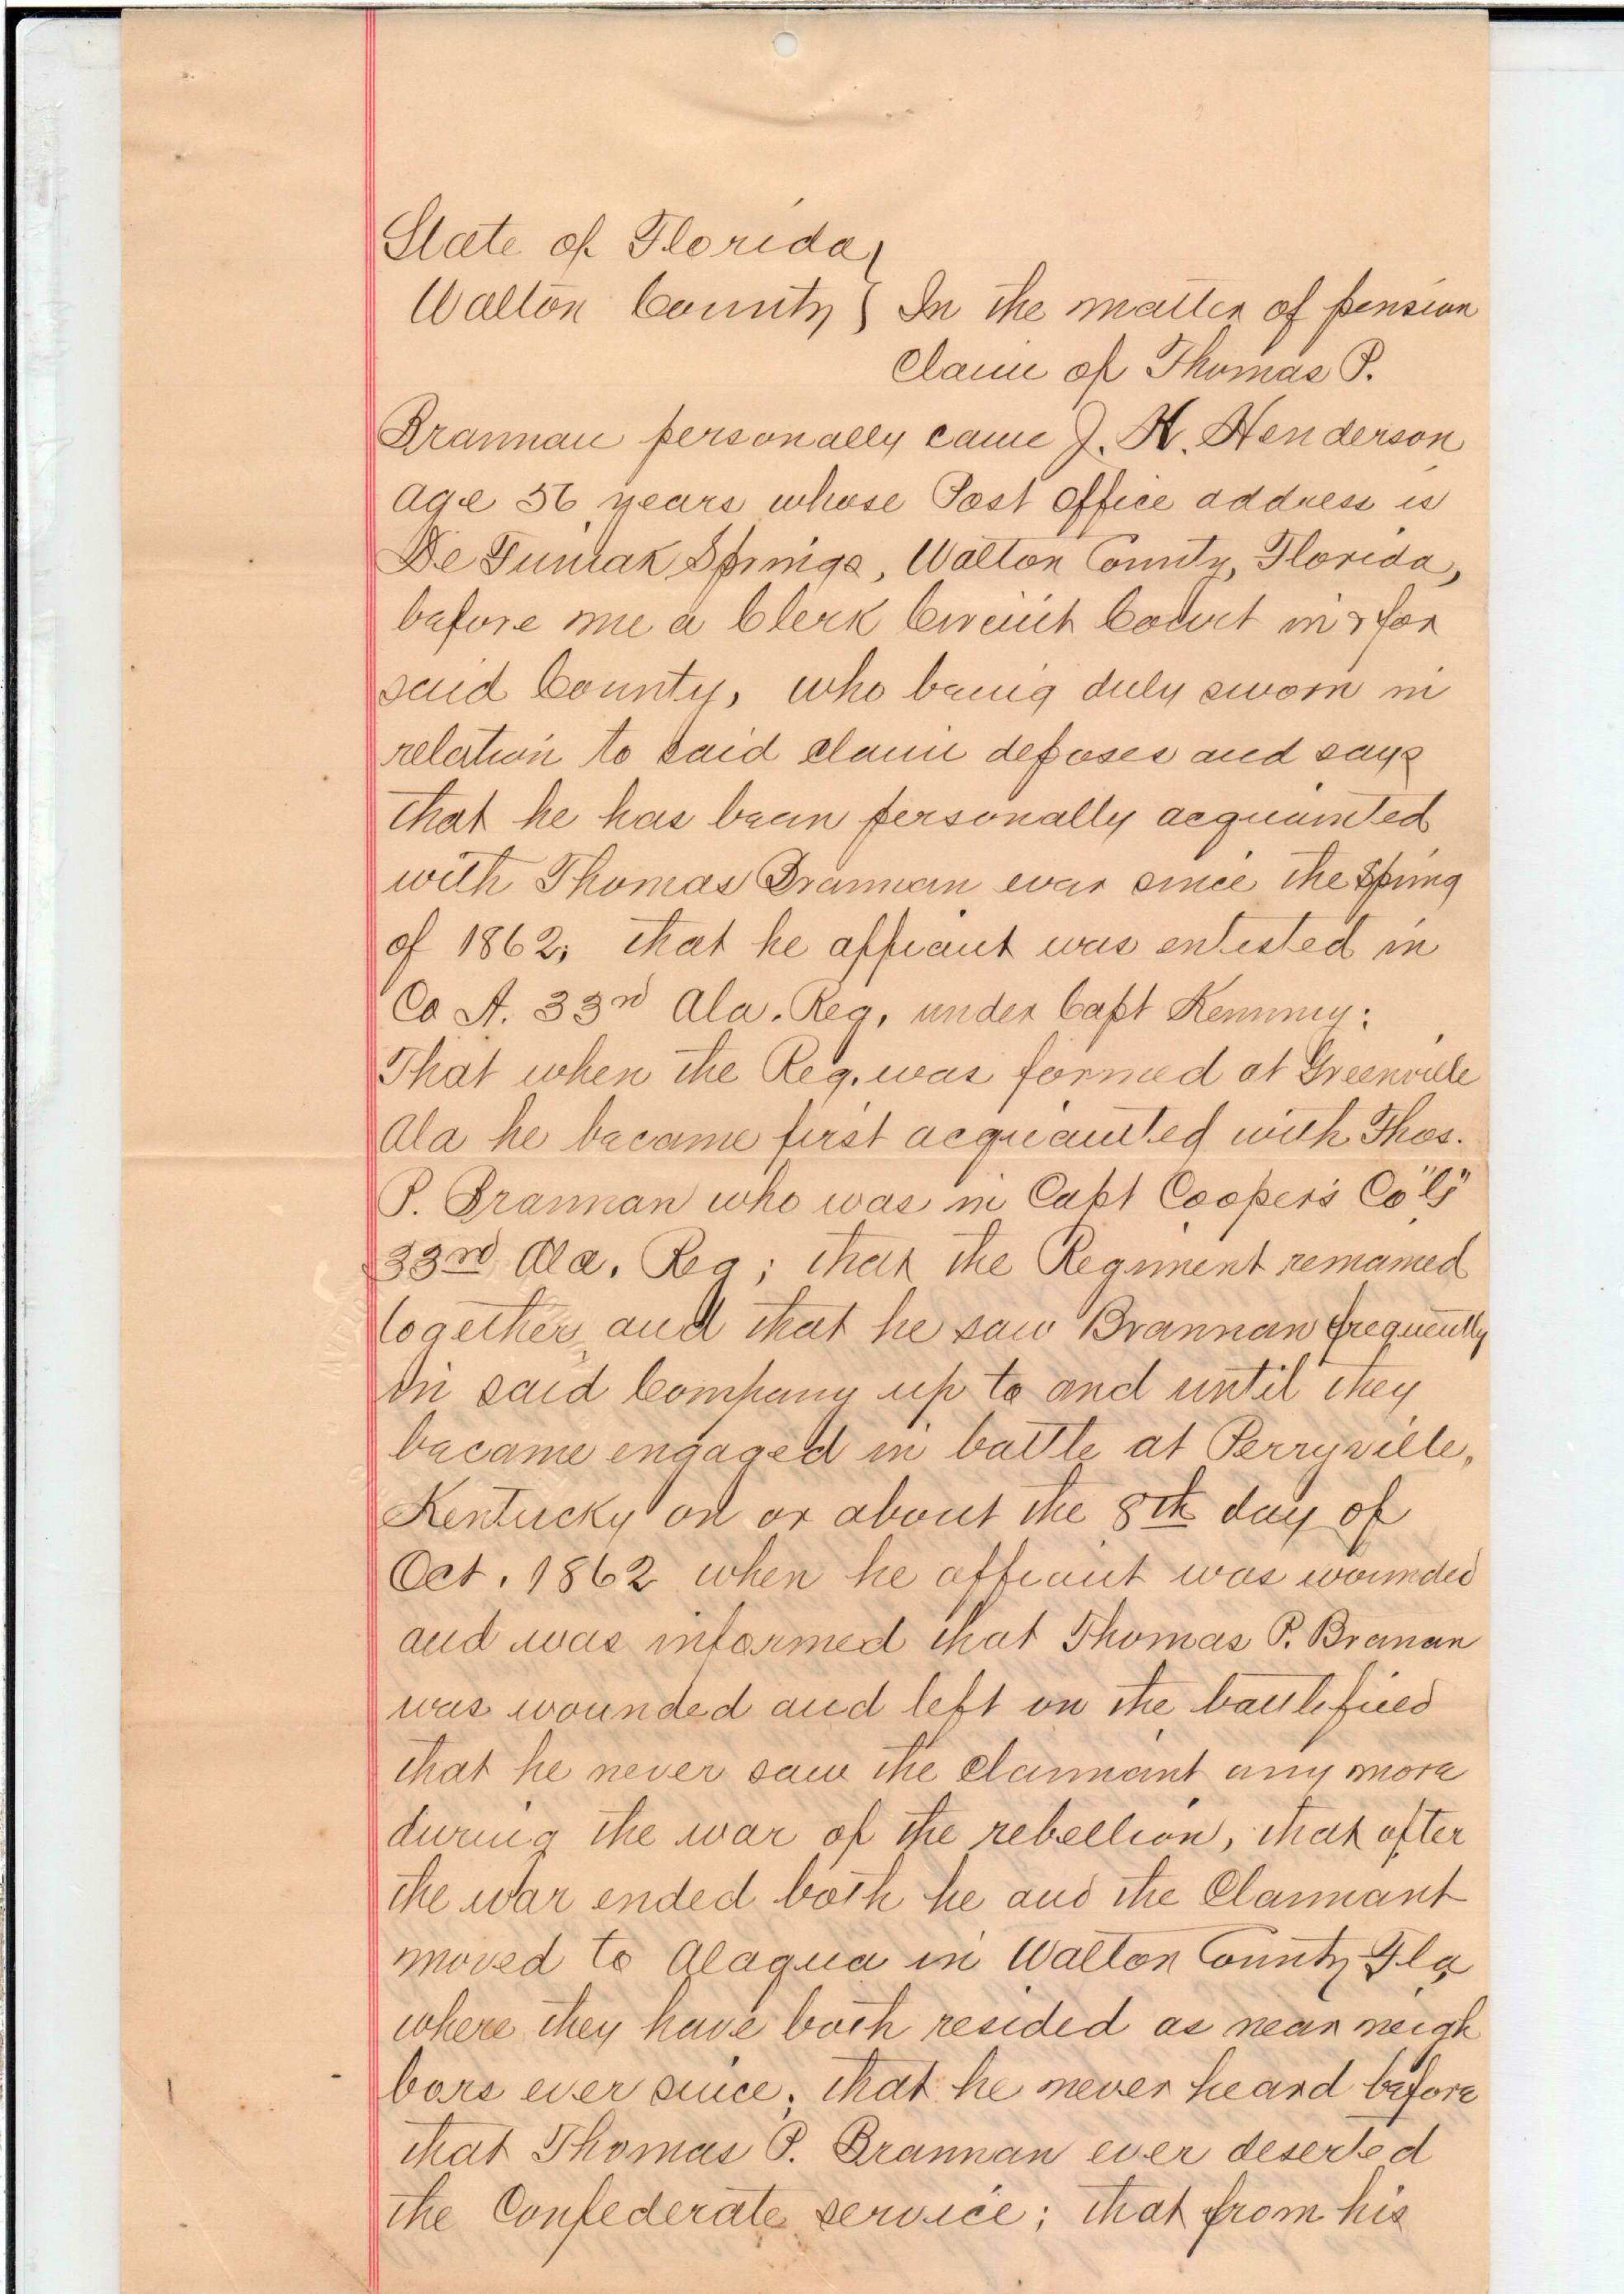 State of Florida }
Walton County } In the matter of pension
Claim of Thomas P.
Brannan personally came J. H. Henderson
age 56 years whose Post Office address is
De Funiak Springs, Walton County, Florida,
before me a Clerk Circuit Court in & for
said County, who being duly sworn in
relation to said claim deposes and says
that he has been personally acquainted
with Thomas Brannan ever since the Spring
of 1862; that he affiant was enlisted in
Co A. 33rd Ala. Reg, under Capt
That when the Reg. was formed at Greenville
Ala he became first acquainted with Thos.
P. Brannan who was in Capt Cooper's Co "G"
33rd Ala. Reg; that the Regiment remained
together, and that he saw Brannan frequently
in said Company up to and until they
became engaged in battle at Perryville,
Kentucky on or about the 8th day of
Oct. 1862 when he affiant was wounded
and was informed that Thomas P. Branan
was wounded and left on the battlefield
that he never saw the Claimant any more
during the war of the rebellion, that after
the war ended both he and the Claimant
moved to Alaqua in Walton County Fla
where they have both resided as near neigh
bors ever since; that he never heard before
that Thomas P. Brannan ever deserted
the Confederate service; that from his